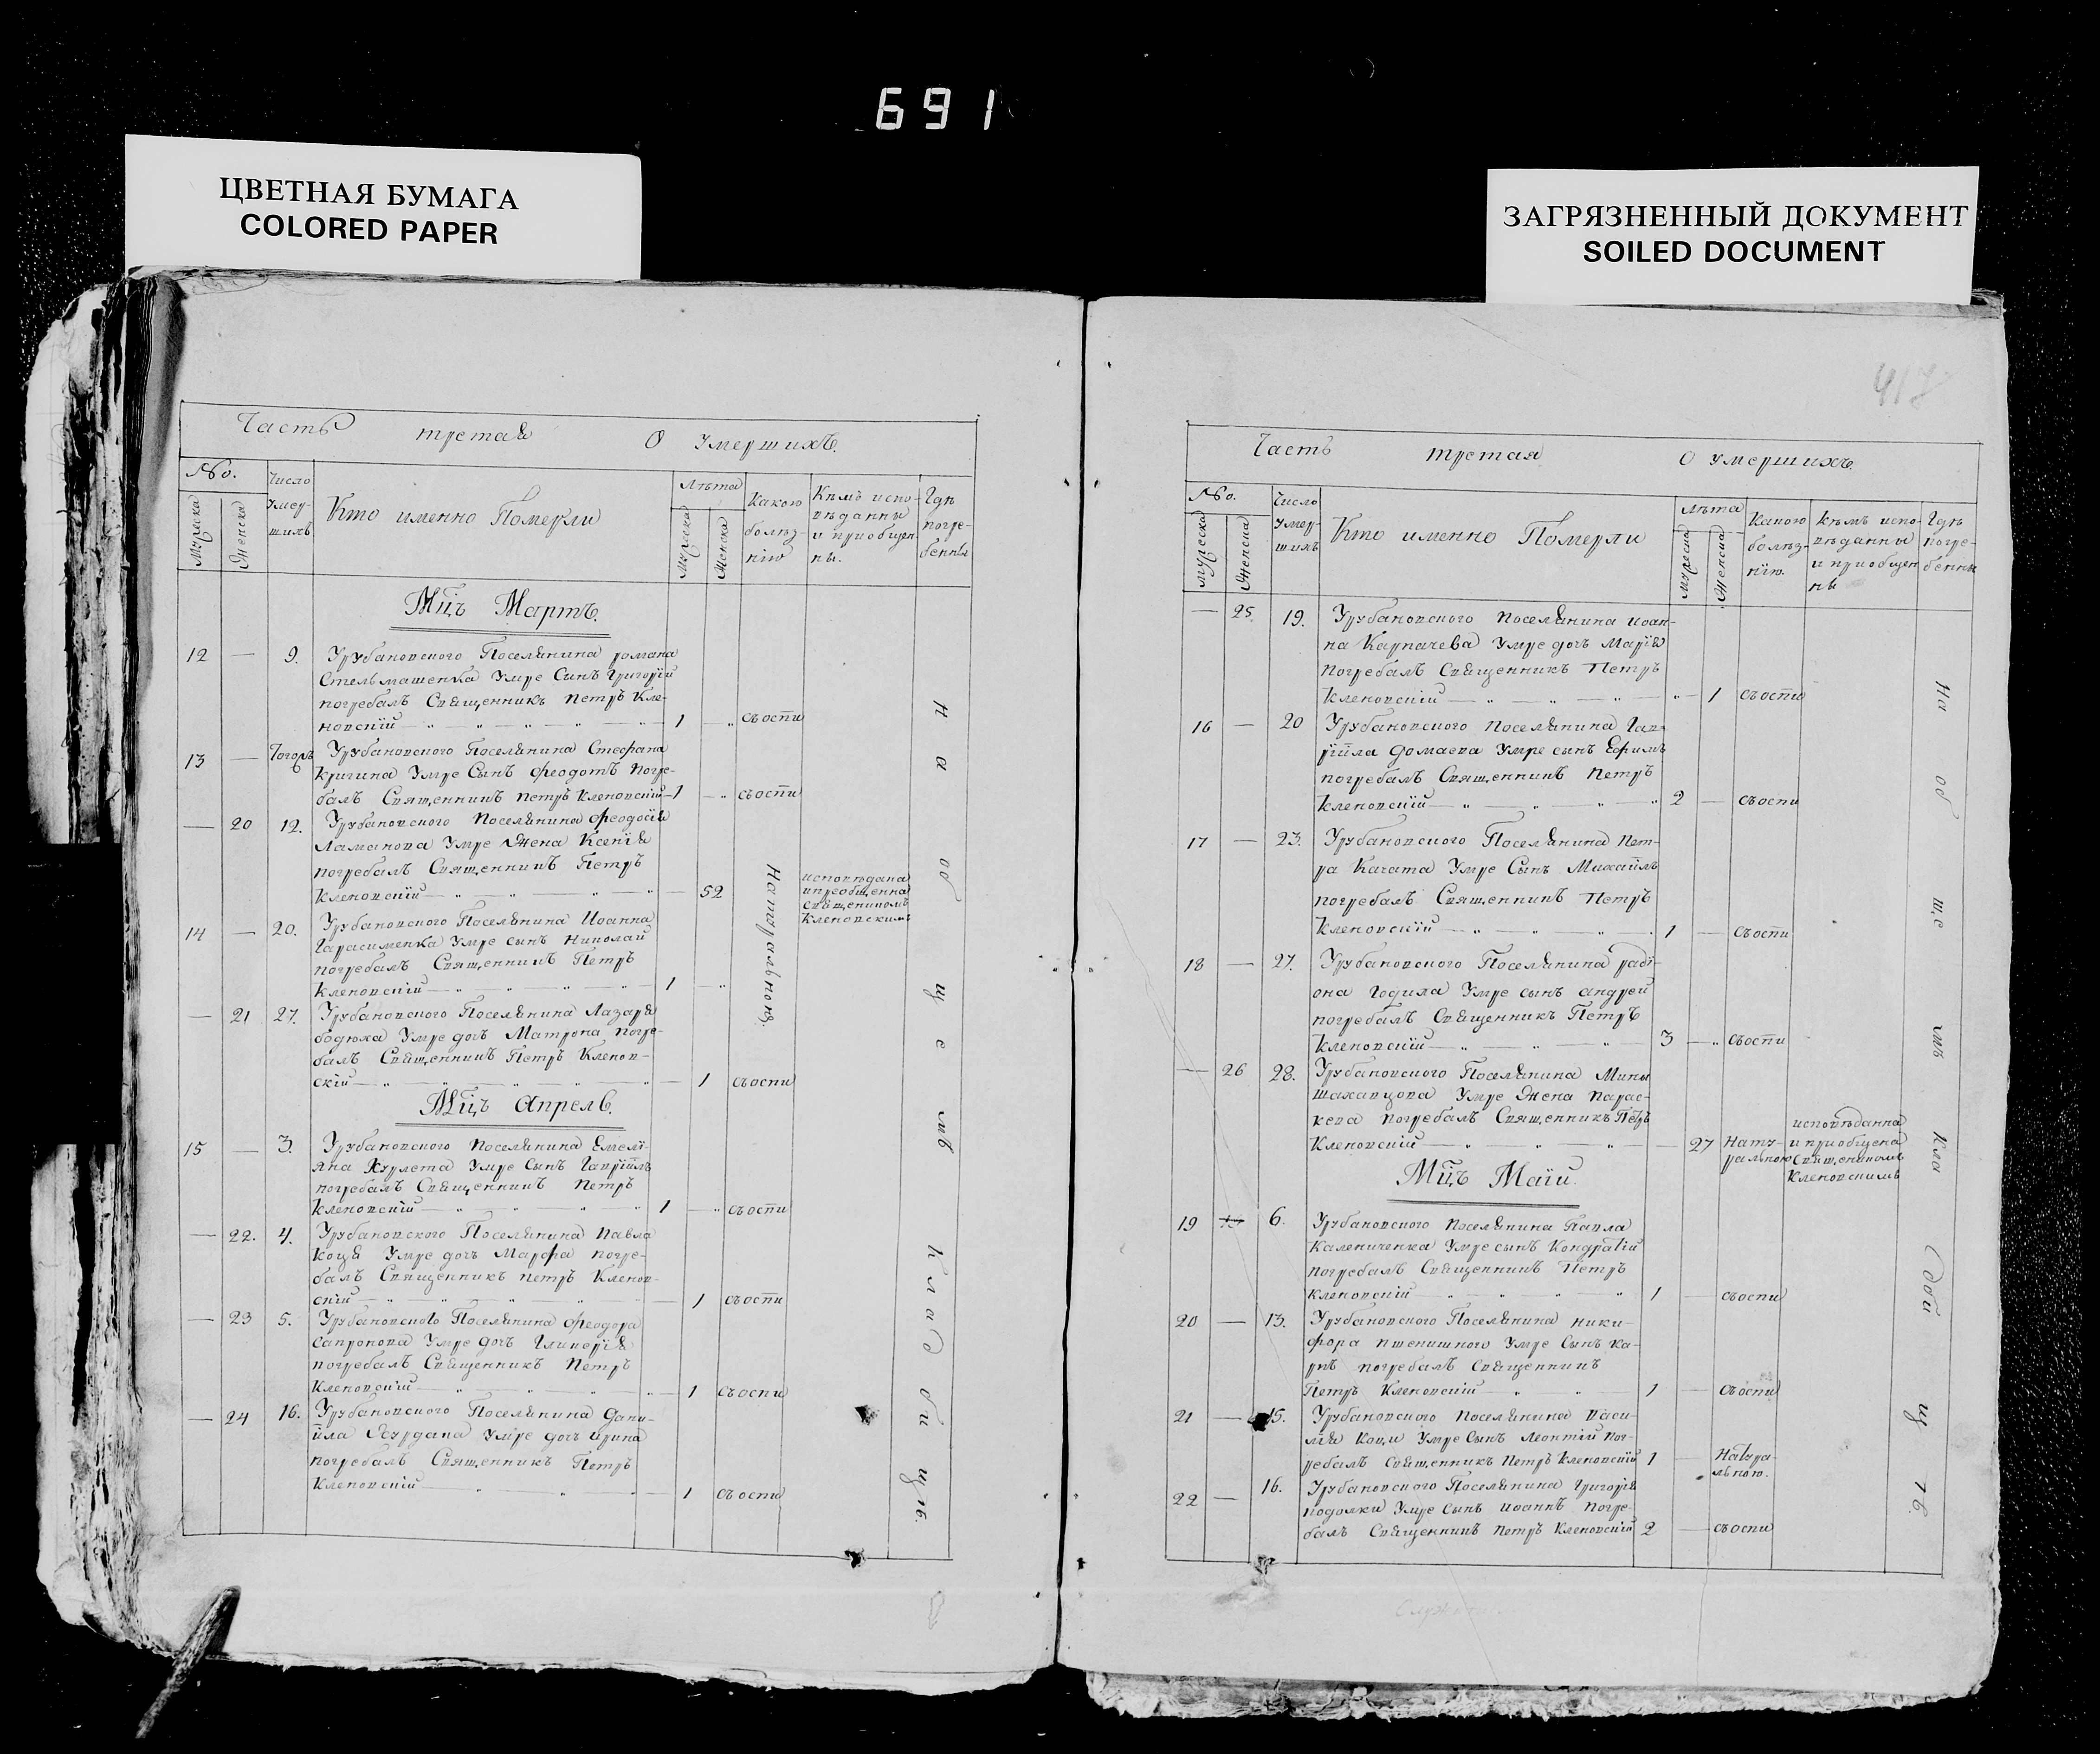 691
ЦВЕТНАЯ БУМАГА
COLORED PAPER
ЗАГРЯЗНЕННЫЙ ДОКУМЕНТ
SOILED DOCUMENT
Часть третая О Умершихъ.
No. Число Умер-шихъ Кто именно Померли Лѣта Какою болѣз-нію Кѣмъ испо-вѣданы и приобщен-ны. Гдѣ погре-бенны
Мужеска Женска Мужеска Женска
Мцъ Мартъ.
12 — 9. Урубановского Поселянина романа
Стельмашенка Умре Сынъ Григорій
погребалъ Священникъ Петръ Кле-
новскій 1 — съоспи
13 — Тогожъ Урубановского Поселянина Стефана
Кригина Умре Сынъ Феодотъ Погре-
балъ Священникъ Петръ Кленовскій 1 — съоспи
— 20 12. Урубановского Поселянина Феодосія
Ламанова Умре Жена Ксенія
погребалъ Священникъ Петръ
Кленовскій — 52 Натуральною. исповѣдана
ипреобщенна
Священникомъ
Кленовскимъ
14 — 20. Урубановского Поселянина Иоанна
Гарасименка Умре сынъ Николай
погребалъ Священникъ Петръ
Кленовскій 1
— 21 27. Урубановского Поселянина Лазаря
бодюка Умре дочь Матрона погре-
балъ Священникъ Петръ Кленов-
скій — 1 съоспи
Мцъ Апрель.
15 — 3. Урубановского Поселянина Емелі-
яна Хурлета Умре Сынъ Гавріилъ
погребалъ Священникъ Петръ
Кленовскій 1 — съоспи
— 22. 4. Урубановского Поселянина Павла
Коця Умре дочь Марфа погре-
балъ Священникъ Петръ Кленов-
скій — 1 съоспи
— 23 5. Урубановского Поселянина Феодора
Сапронова Умре дочь Гликерія
погребалъ Священникъ Петръ
Кленовскій — 1 съоспи
— 24 16. Урубановского Поселянина Дани-
ила Умре дочь Ирина
погребалъ Священникъ Петръ
Кленовскій — 1 съоспи
На обществ кладбищѣ.
417
Часть третая О умершихъ.
No. Число Умер-шихъ Кто именно Померли Лѣта Какою болѣз-нію. Кѣмъ испо-вѣданы и приобщен-ны Гдѣ погре-бенны
Мужеска Женска Мужеска Женска
— 25. 19. Урубановского Поселянина Иоан-
на Карпачева Умре дочь Марія
погребалъ Священникъ Петръ
Кленовскій — 1 съоспи
16 — 20 Урубановского Поселянина Гав-
ріила Домаева Умре сынъ Ефимъ
погребалъ Священникъ Петръ
Кленовскій 2 — съоспи
17 — 23. Урубановского Поселянина Пет-
ра Качата Умре Сынъ Михаилъ
погребалъ Священникъ Петръ
Кленовскій 1 — съоспи
18 — 27. Урубановского Поселянина раді-
она Годила Умре сынъ андрей
погребалъ Священникъ Петръ
Кленовскій 3 — съоспи
— 26 28. Урубановского Поселянина Мины
Шахавцова Умре Жена Парас-
кева погребалъ Священникъ Петръ
Кленовскій — 27 Нату-
ральною исповѣданна
и приобщена
Священикомъ
Кленовскимъ
Мцъ Маій.
19 6. Урубановского Поселянина Павла
Калениченка Умре сынъ Кондратій
погребалъ Священникъ Петръ
Кленовскій 1 — съоспи
20 — 13. Урубановского Поселянина ники-
фора пшенишного Умре Сынъ ка-
рпъ погребалъ Священникъ
Петръ Кленовскій 1 — съоспи
21 — 15. Урубановского Поселянина Васи-
лія Коци Умре Сынъ Леонтій пог-
ребалъ Священникъ Петръ Кленовскій 1 — Натура-
льною.
22 — 16. Урубановского Поселянина Григорія
подолки Умре Сынъ иоаннъ Погре-
балъ Священникъ Петръ Кленовскій 2 — съоспи
На общемъ Кладбищѣ.